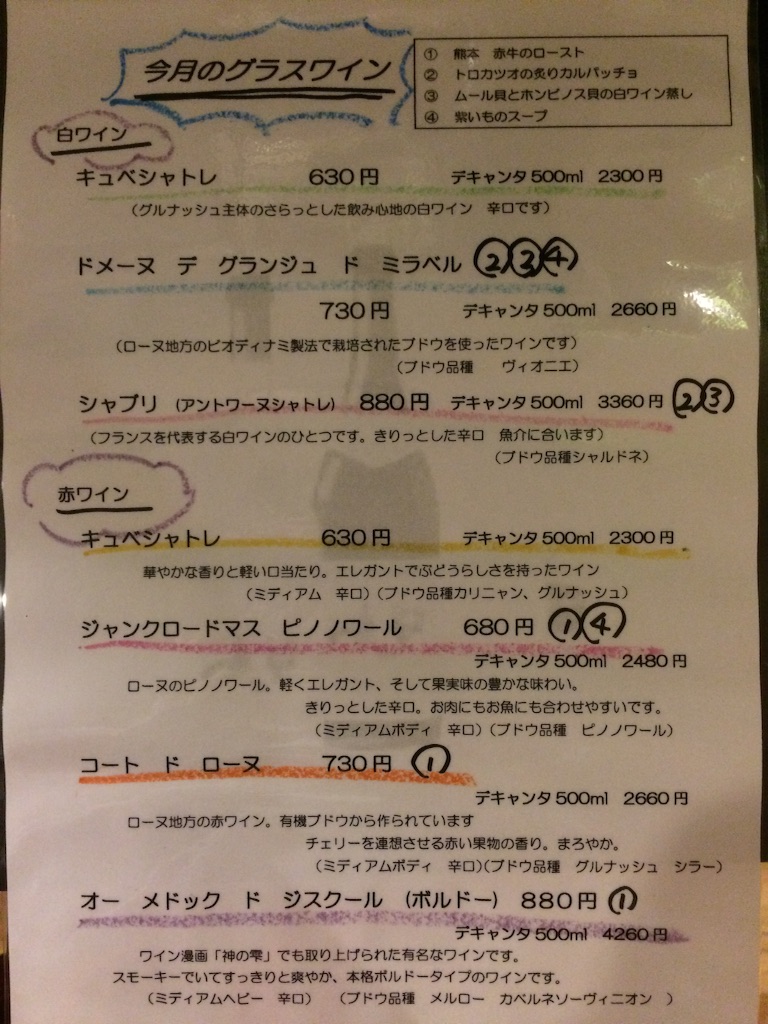 今月のグラスワイン
① 熊本 赤牛のロースト
② トロカツオの炙りカルパッチョ
③ ムール貝とホンビノス貝の白ワイン蒸し
④ 紫いものスープ
白ワイン
キュベシャトレ 630円 デキャンタ500ml 2300円
(グルナッシュ主体のさらっとした飲み心地の白ワイン 辛口です)
ドメーヌ デ グランジュ ド ミラベル ②③④
730円 デキャンタ500ml 2660円
(ローヌ地方のビオディナミ製法で栽培されたブドウを使ったワインです)
(ブドウ品種 ヴィオニエ)
シャブリ (アントワーヌシャトレ) 880円 デキャンタ500ml 3360円 ②③
(フランスを代表する白ワインのひとつです。きりっとした辛口 魚介に合います)
(ブドウ品種シャルドネ)
赤ワイン
キュベシャトレ 630円 デキャンタ500ml 2300円
華やかな香りと軽い口当たり。エレガントでぶどうらしさを持ったワイン
(ミディアム 辛口)(ブドウ品種カリニャン、グルナッシュ)
ジャンクロードマス ピノノワール 680円 ①④
デキャンタ500ml 2480円
ローヌのピノノワール。軽くエレガント、そして果実味の豊かな味わい。
きりっとした辛口。お肉にもお魚にも合わせやすいです。
(ミディアムボディ 辛口)(ブドウ品種 ピノノワール)
コート ド ローヌ 730円 ①
デキャンタ500ml 2660円
ローヌ地方の赤ワイン。有機ブドウから作られています
チェリーを連想させる赤い果物の香り。まろやか。
(ミディアムボディ 辛口)(ブドウ品種 グルナッシュ シラー)
オー メドック ド ジスクール (ボルドー) 880円 ①
デキャンタ500ml 4260円
ワイン漫画「神の雫」でも取り上げられた有名なワインです。
スモーキーでいてすっきりと爽やか、本格ボルドータイプのワインです。
(ミディアムヘビー 辛口) (ブドウ品種 メルロー カベルネソーヴィニオン )